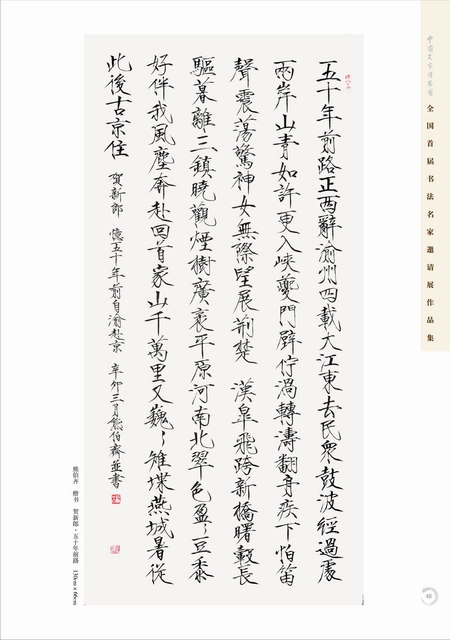 中国文字博物馆
全国首届书法名家邀请展作品集
五十年前路正西辭渝州四載大江東去民眾鼓波經過處
兩岸山青如許更入峽夔門辟佇渦轉濤翻身疾下怕笛
聲震蕩驚神女無際望展荊楚 漢皋飛跨新橋曙轂長
驅暮離三鎮曉觀煙樹廣袤平原河南北翠色盈〻豆黍
好伴我風塵奔赴回首家山千萬里又巍〻雉堞燕城暑從
此後古京住
贺新郎 憶五十年前自渝赴京 辛卯三月熊伯齊並書
熊伯齐 楷书 贺新郎·五十年前路 130cm×66cm
48